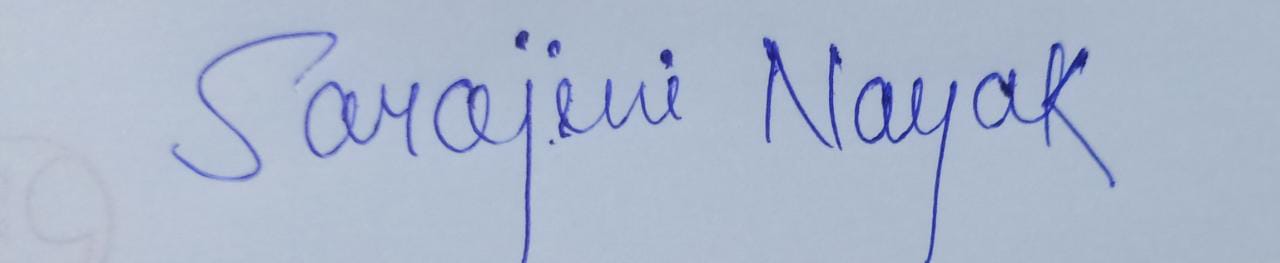 Sarajini Nayak